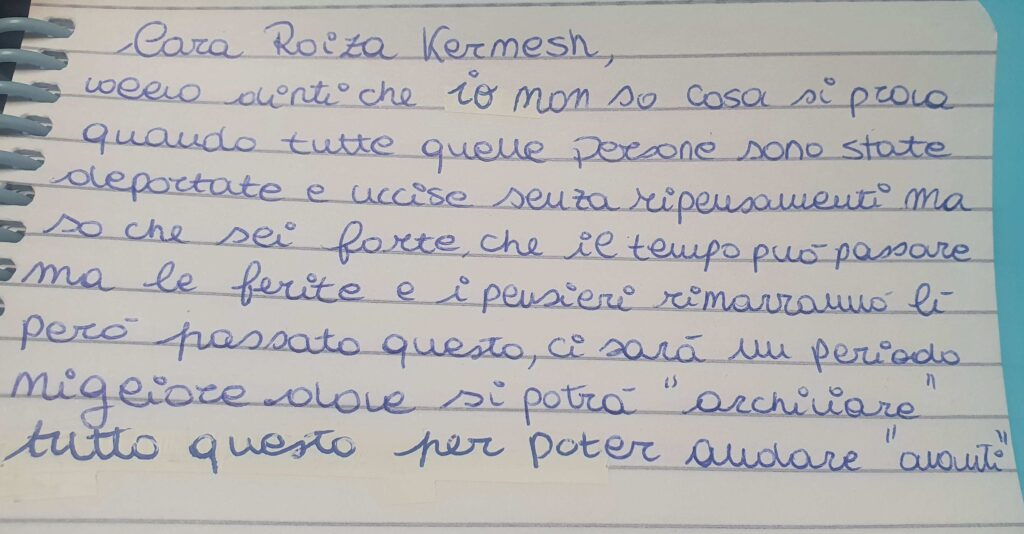 Cara Roiza Kermesh,
voglio dirti che io non so cosa si prova
quando tutte quelle persone sono state
deportate e uccise senza ripensamenti ma
so che sei forte, che il tempo può passare
ma le ferite e i pensieri rimarranno lì
però passato questo, ci sarà un periodo
migliore dove si potrà "archiviare"
tutto questo per poter andare "avanti"